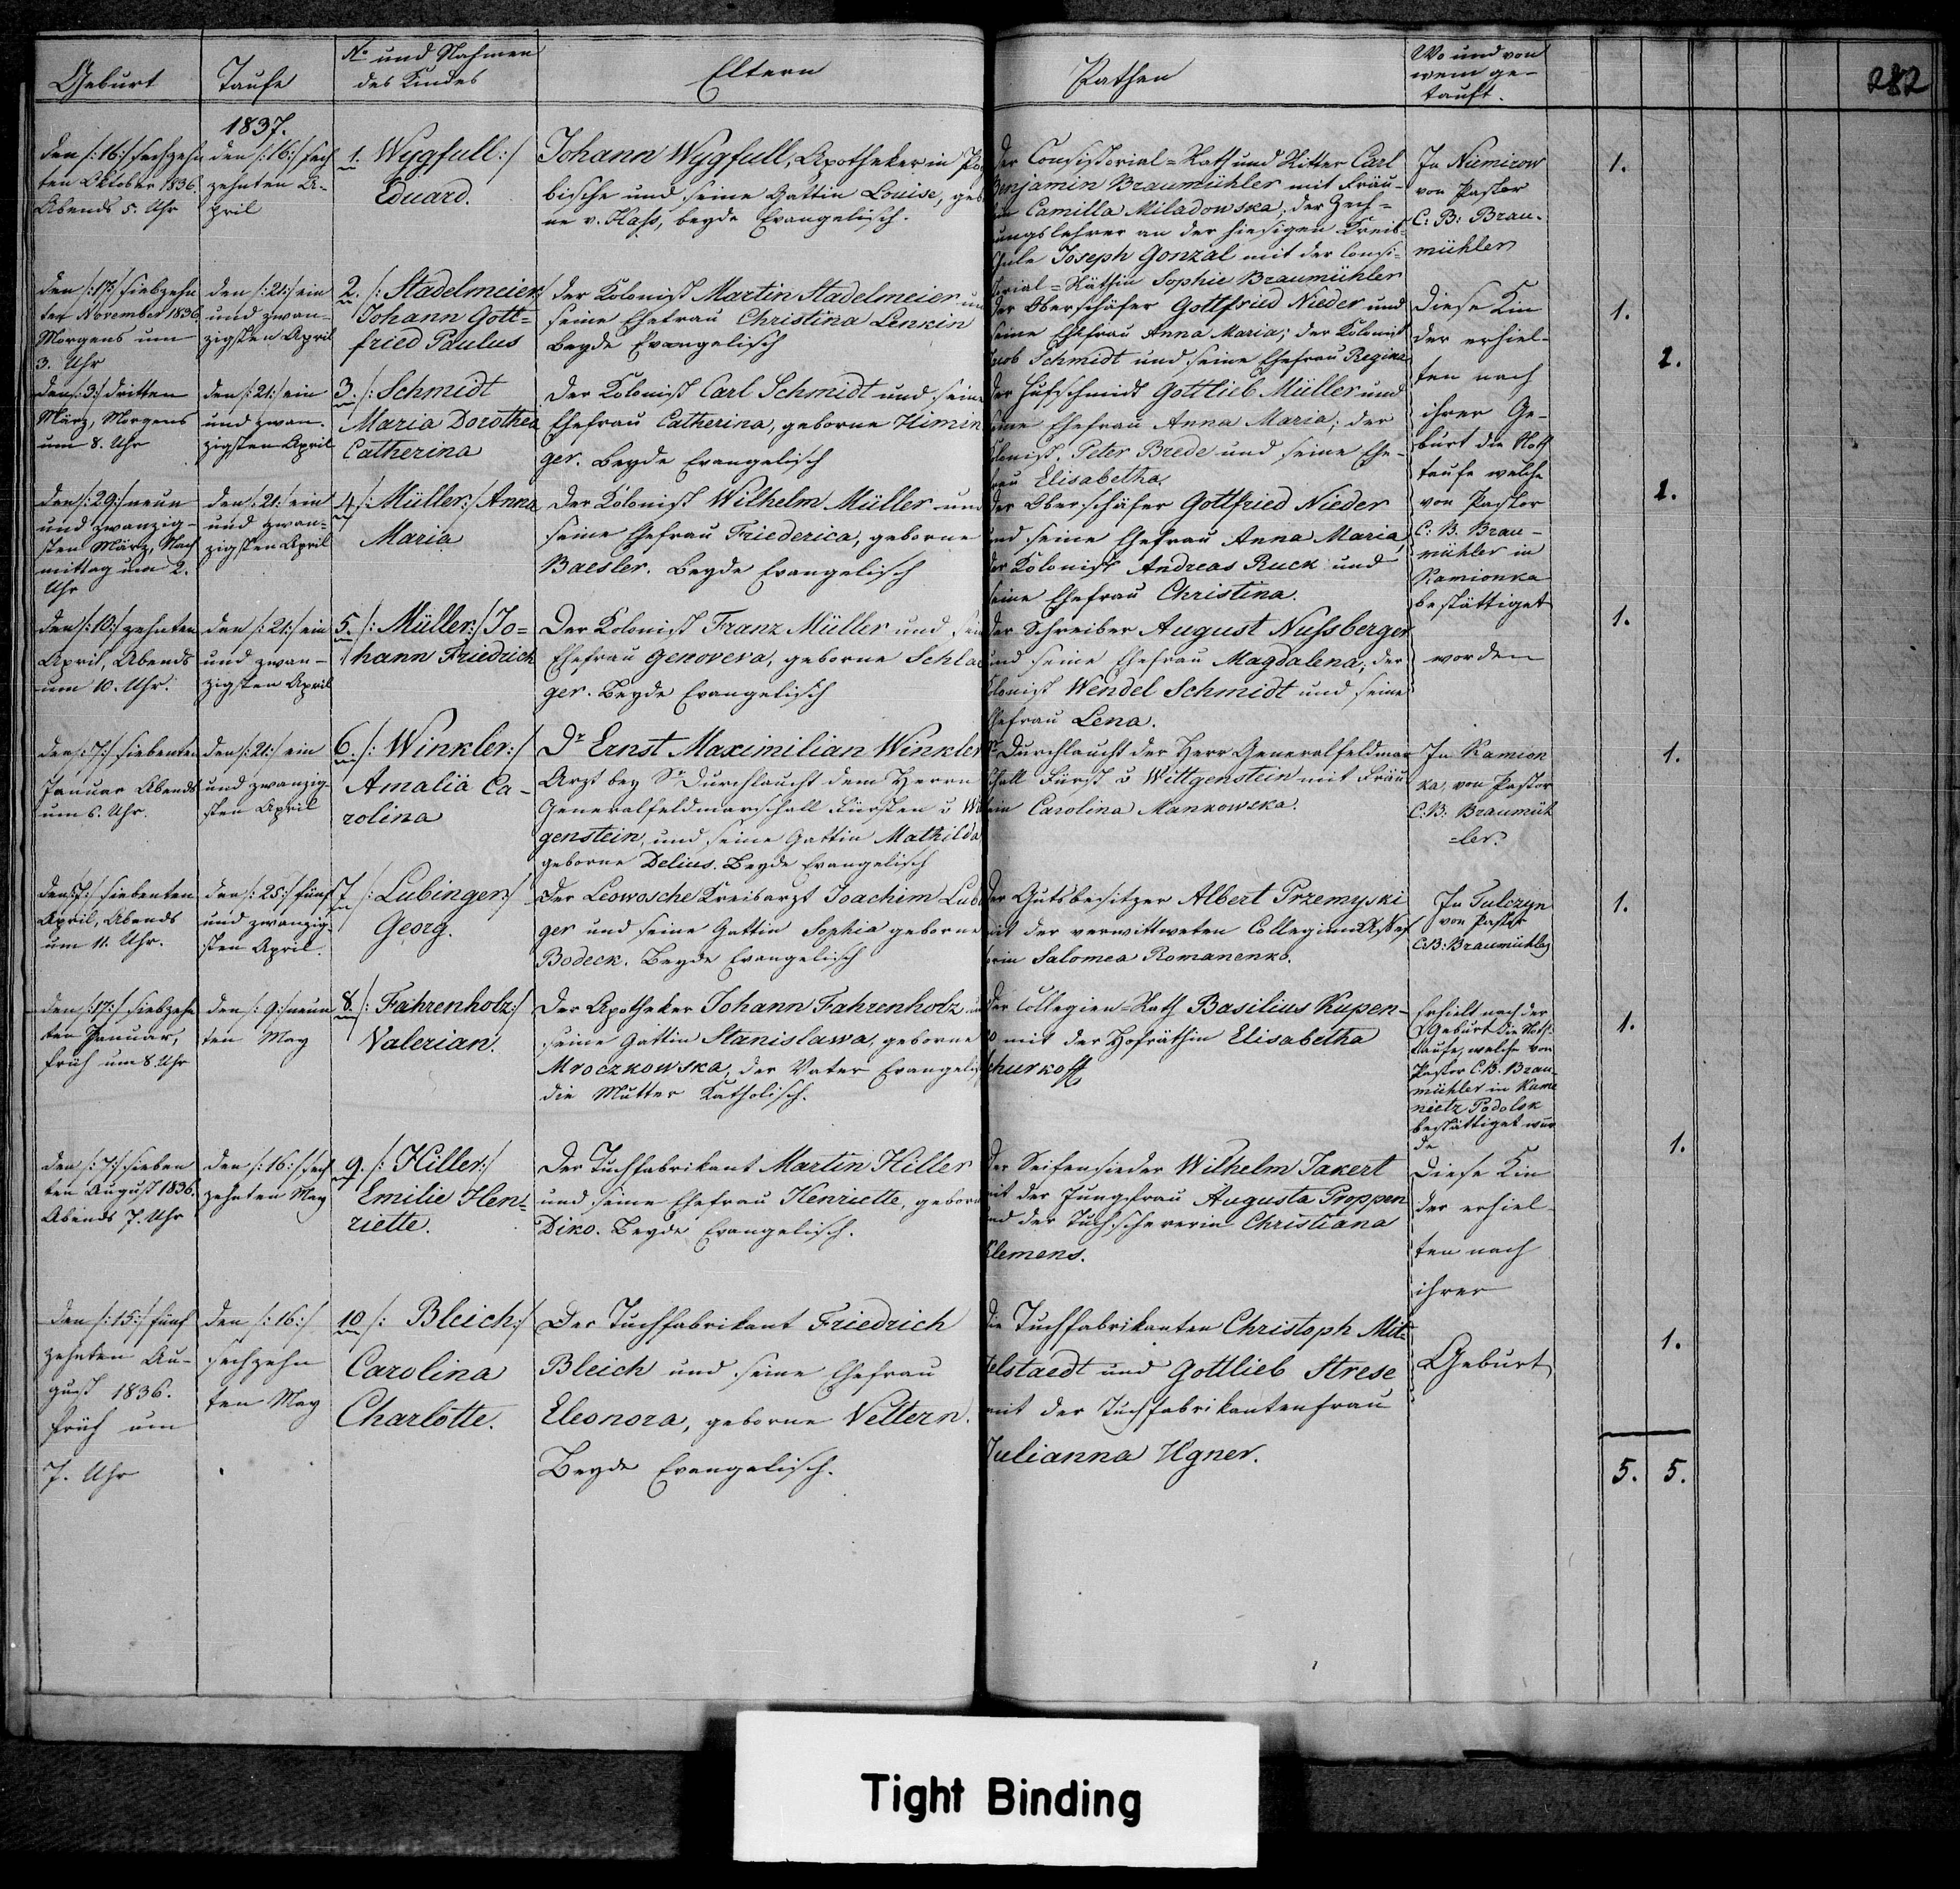 Geburt
Taufe
No und Nahmen
des Kindes
Eltern
Pathen
Wo und von
wem ge-
tauft.
282
1837.
den /:16:/ sechzehn
ten Oktober 1836.
Abends 5. Uhr
den /:16:/ sech
zehnten A-
pril
1. Wygfull:/
Eduard.
Johann Wygfull, Apotheker in
bische und seine Gattin Louise, geb
ne v. Hass, beyde Evangelisch.
der Consistorial=Rath und Ritter Carl
Benjamin Braumühler mit Fräu-
Camilla Miladowska; der Zech=
nungslehrer an der hiesigen Kreis=
schule Joseph Gonzal mit der Consi-
storial=Räthin Sophie Braumühler
In Niemirow
von Pastor
C: B: Brau-
mühler
1.
den /:17:/ siebzehn
ten November 1836.
Morgens um
3. Uhr
den /:21:/ ein
und zwan-
zigsten April
2. /: Stadelmeier:/
Johann Gott=
fried Paulus
der Kolonist Martin Stadelmeier un
seine Ehefrau Christina Lenkin
Beyde Evangelisch
der Oberschäfer Gottfried Nieder und
seine Ehefrau Anna Maria; der Kolonist
Jacob Schmidt und seine Ehefrau Regina
Diese Kin
der erhiel-
ten nach
ihrer Ge-
burt die Noth
taufe welche
von Pastor
C: B. Brau-
mühler in
Kamionka
bestättiget
worden
1.
den /:3:/ dritten
März, Morgens
um 8. Uhr
den /:21:/ ein
und zwan-
zigsten April
3. /: Schmidt
Maria Dorothea
Catherina
Der Kolonist Carl Schmidt und seine
Ehefrau Catherina, geborne Himin
ger. Beyde Evangelisch
der Hufschmidt Gottlieb Müller und
seine Ehefrau Anna Maria; der
Kolonist, Peter Brede und seine Ehe-
frau Elisabetha.
1.
den /:29:/ neun
und zwanzig-
sten März, Nach
mittag um 2.
Uhr
den /:21:/ ein
und zwan-
zigsten April
4. /: Müller:/ Anna
Maria
Der Kolonist Wilhelm Müller und
seine Ehefrau Friederica, geborne
Baesler. Beyde Evangelisch
der Oberschäfer Gottfried Nieder
und seine Ehefrau Anna Maria,
der Kolonist Andreas Ruck und
seine Ehefrau Christina.
1.
den /:10:/ zehnten
April, Abends
um 10. Uhr.
den /:21:/ ein
und zwan-
zigsten April
5. /: Müller:/ Jo=
hann Friedrich
Der Kolonist Franz Müller und sein
Ehefrau Genoveva, geborne Schla
ger. Beyde Evangelisch
der Schreiber August Nussberger
und seine Ehefrau Magdalena; der
Kolonist Wendel Schmidt und seine
Ehefrau Lena.
1.
den /:7:/ siebenten
Januar Abends
um 6. Uhr.
den /:21:/ ein
und zwanzig-
sten April
6. /: Winkler:/
Amalia Ca-
rolina
Dr Ernst Maximilian Winkler
Arzt bey Sr Durchlaucht dem Herrn
Generalfeldmarschall Fürsten v Wit
genstein, und seine Gattin Mathilda,
geborne Delius. Beyde Evangelisch
Sr Durchlaucht der Herr Generalfeldmar
schall Fürst v Wittgenstein mit Fräu
lein Carolina Mankowska.
In Kamion
ka, von Pastor
C: B: Braumüh
=ler.
1.
den /:7:/ siebenten
April, Abends
um 11. Uhr.
den /:25:/ fünf
und zwanzig-
sten April.
7 /: Lubinger:/
Georg.
Der Leowosche Kreisarzt Joachim Lubi
ger und seine Gattin Sophia geborne
Bodeck. Beyde Evangelisch
der Gutsbesitzer Albert Przemyski
mit der verwittweten Collegien Assess
orin Salomea Romanenko.
In Tulczyn
von Pastor
C:B: Braumühler
1.
den /:17:/ siebzehn
ten Januar,
früh um 8 Uhr
den /:9:/ neun
ten May
8. /: Fahrenholz:/
Valerian.
Der Apotheker Johann Fahrenholz un
seine Gattin Stanislawa, geborne
Mroczkowska, der Vater Evangelisch
die Mutter Katholisch.
der Collegien-Rath Basilius Kupen-
ko mit der Hofräthin Elisabetha
churkoff
Erhielt nach der
Geburt die Noth-
taufe, welche von
Pastor C.B. Brau-
mühler in Kame
nietz Podolsk
bestättiget wur
de
1.
den /:7:/ sieben
ten August 1836.
Abends 7. Uhr
den /:16:/ sech
zehnten May
9. /: Hiller:/
Emilie Hen=
riette.
Der Tuchfabrikant Martin Hiller
und seine Ehefrau Henriette, geborn
Diko. Beyde Evangelisch.
der Seifensieder Wilhelm Jakert
mit der Jungfrau Augusta Proppen
und der Tuchschererin Christiana
Clemens.
Diese Kin
der erhiel-
ten nach
ihrer
Geburt
1.
den /:15:/ fünf
zehnten Au-
gust 1836.
früh um
7. Uhr
den /:16:/
sechzehn
ten May
10 /: Bleich:/
Carolina
Charlotte.
Der Tuchfabrikant Friedrich
Bleich und seine Ehefrau
Eleonora, geborne Veltern.
Beyde Evangelisch.
die Tuchfabrikanten Christoph Mit=
telstaedt und Gottlieb Strese
mit der Tuchfabrikantenfrau
Julianna Ugner.
1.
5. 5.
Tight Binding